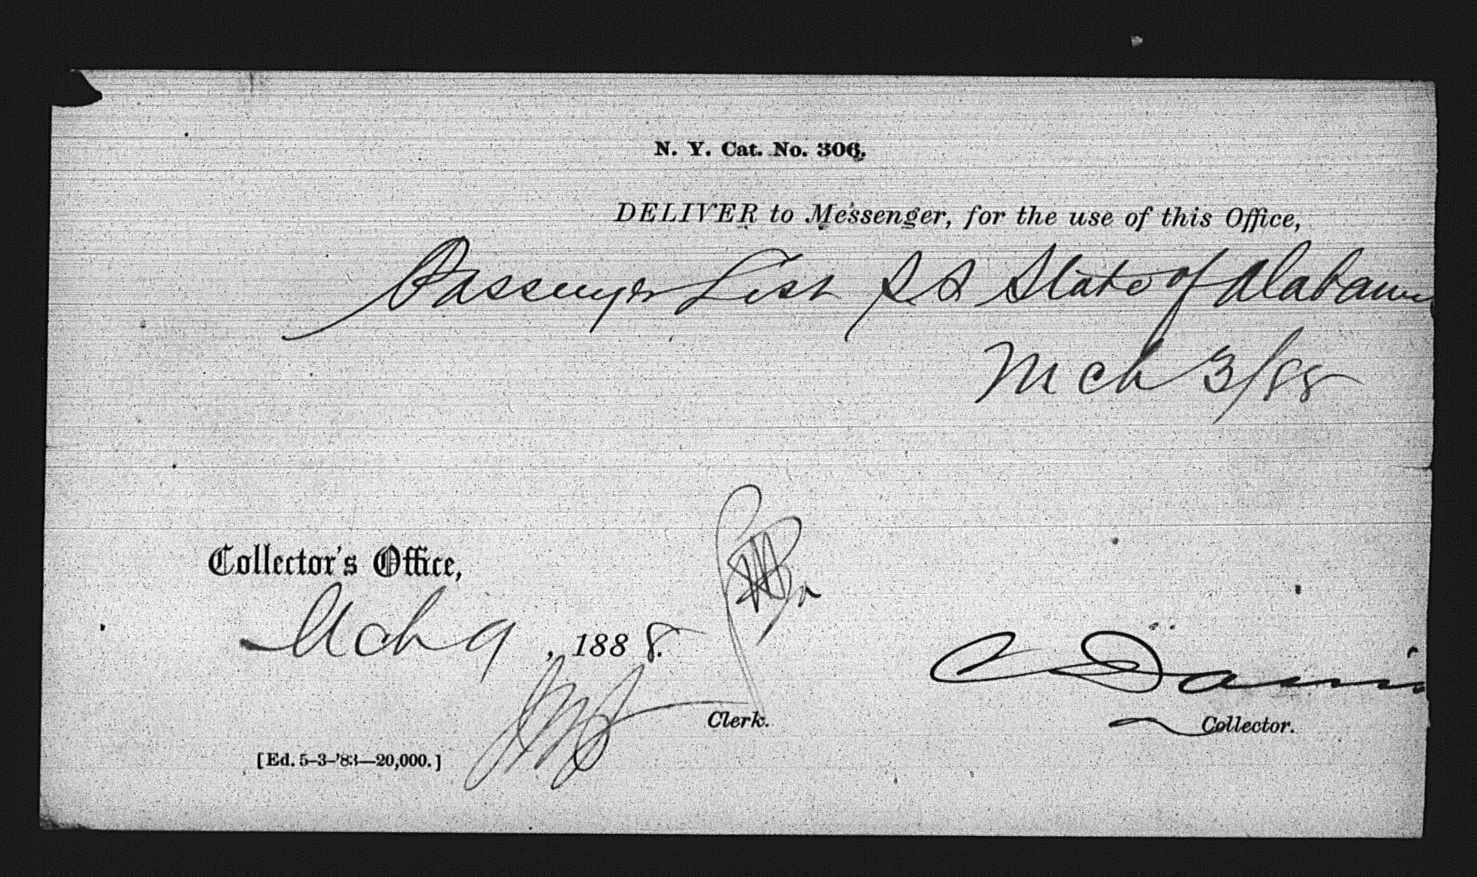 N. Y. Cat. No. 306.
DELIVER to Messenger, for the use of this Office,
Passenger List S S State of Alabama
Mch 3/88
Collector's Office,
Mch 9, 1888.
Clerk.
Collector.
[Ed. 5-3-'83—20,000.]